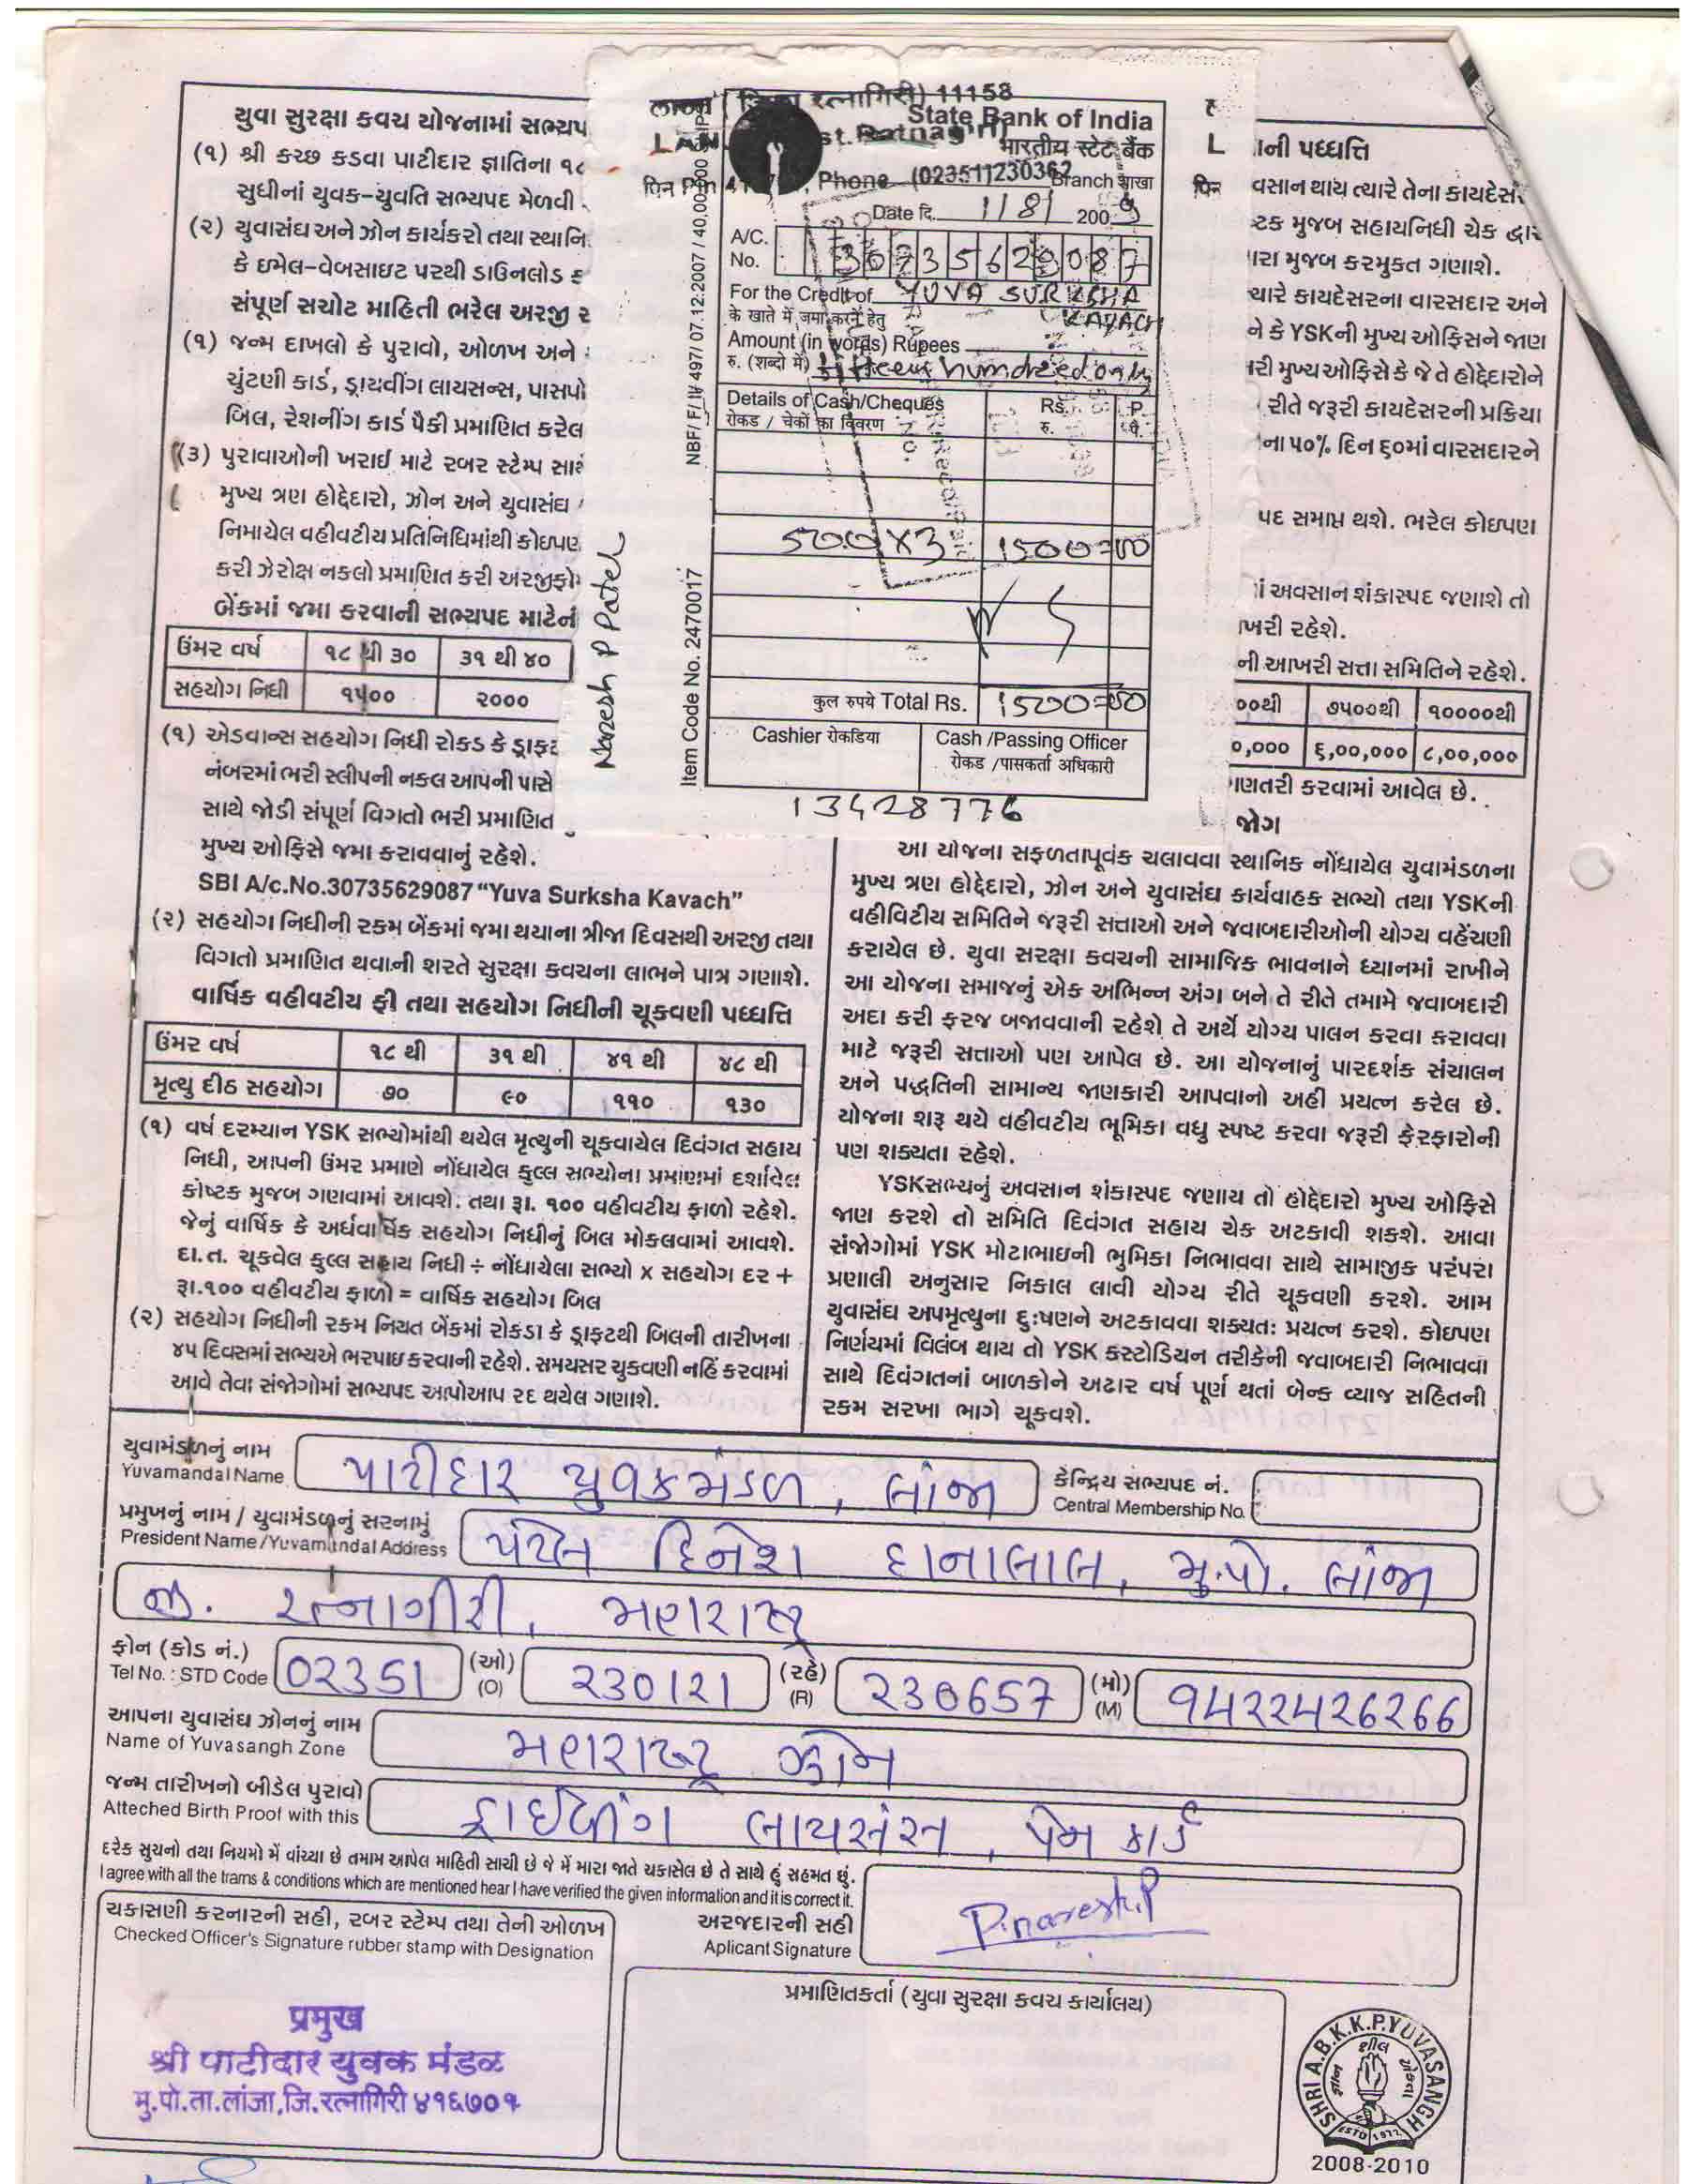 યુવા સુરક્ષા કવચ યોજનામાં સભ્યપ
(૧) શ્રી કચ્છ કડવા પાટીદાર જ્ઞાતિના ૧૮
સુધીનાં યુવક-યુવતિ સભ્યપદ મેળવી
(૨) યુવાસંઘ અને ઝોન કાર્યકરો તથા સ્થાનિ
કે ઇમેલ-વેબસાઇટ પરથી ડાઉનલોડ ક
સંપૂર્ણ સચોટ માહિતી ભરેલ અરજી ર
(૧) જન્મ દાખલો કે પુરાવો, ઓળખ અને
ચુંટણી કાર્ડ, ડ્રાયવીંગ લાયસન્સ, પાસપો
બિલ, રેશનીંગ કાર્ડ પૈકી પ્રમાણિત કરેલ
(૩) પુરાવાઓની ખરાઈ માટે રબર સ્ટેમ્પ સાથે
મુખ્ય ત્રણ હોદ્દેદારો, ઝોન અને યુવાસંઘ
નિમાયેલ વહીવટીય પ્રતિનિધિમાંથી કોઇપણ
કરી ઝેરોક્ષ નકલો પ્રમાણિત કરી અરજીફો
બેંકમાં જમા કરવાની સભ્યપદ માટેનં
ઉંમર વર્ષ ૧૮ થી ૩૦ ૩૧ થી ૪૦
સહયોગ નિધી ૧૫૦૦ ૨૦૦૦
(૧) એડવાન્સ સહયોગ નિધી રોકડ કે ડ્રાફ્ટ
નંબરમાં ભરી સ્લીપની નકલ આપની પાસે
સાથે જોડી સંપૂર્ણ વિગતો ભરી પ્રમાણિત
મુખ્ય ઓફિસે જમા કરાવવાનું રહેશે.
SBI A/c.No.30735629087 “Yuva Surksha Kavach”
(૨) સહયોગ નિધીની રકમ બેંકમાં જમા થયાના ત્રીજા દિવસથી અરજી તથા
વિગતો પ્રમાણિત થવાની શરતે સુરક્ષા કવચના લાભને પાત્ર ગણાશે.
વાર્ષિક વહીવટીય ફી તથા સહયોગ નિધીની ચૂકવણી પધ્ધતિ
ઉંમર વર્ષ ૧૮ થી ૩૧ થી ૪૧ થી ૪૮ થી
મૃત્યુ દીઠ સહયોગ ૭૦ ૯૦ ૧૧૦ ૧૩૦
(૧) વર્ષ દરમ્યાન YSK સભ્યોમાંથી થયેલ મૃત્યુની ચૂકવાયેલ દિવંગત સહાય
નિધી, આપની ઉંમર પ્રમાણે નોંધાયેલ કુલ્લ સભ્યોના પ્રમાણમાં દર્શાવેલ
કોષ્ટક મુજબ ગણવામાં આવશે. તથા રૂા. ૧૦૦ વહીવટીય ફાળો રહેશે.
જેનું વાર્ષિક કે અર્ધવાર્ષિક સહયોગ નિધીનું બિલ મોકલવામાં આવશે.
દા.ત. ચૂકવેલ કુલ્લ સહાય નિધી ÷ નોંધાયેલા સભ્યો x સહયોગ દર +
રૂા.૧૦૦ વહીવટીય ફાળો = વાર્ષિક સહયોગ બિલ
(૨) સહયોગ નિધીની રકમ નિયત બેંકમાં રોકડા કે ડ્રાફ્ટથી બિલની તારીખના
૪૫ દિવસમાં સભ્યએ ભરપાઇ કરવાની રહેશે. સમયસર ચુકવણી નહિં કરવામાં
આવે તેવા સંજોગોમાં સભ્યપદ આપોઆપ રદ થયેલ ગણાશે.
रत्नागिरी) 11158
State Bank of India
भारतीय स्टेट बैंक
st. Ratnagiri)
पिन Pin Phone (02351)230362
Branch शाखा
Date दि. 1/8/ 2009
A/C. No. 30735629087
For the Credit of YUVA SURKSHA
के खाते में जमा करने हेतु KAVACH
Amount (in words) Rupees
रु. (शब्दो में) fifteen hundred only
Details of Cash/Cheques Rs. P.
रोकड / चेकों का विवरण रु. पै.
500 x 3 1500=00
कुल रुपये Total Rs. 1500=00
Cashier रोकडिया
Cash /Passing Officer
रोकड /पासकर्ता अधिकारी
13428776
Naresh P Patel
Item Code No. 2470017
NBF/ F/ IV 497/ 07.12.2007 / 40,00,000
L
पिन
ાની પધ્ધતિ
વસાન થાય ત્યારે તેના કાયદેસ
ષ્ટક મુજબ સહાયનિધી ચેક દ્વાર
ારા મુજબ કરમુક્ત ગણાશે.
ત્યારે કાયદેસરના વારસદાર અને
ને કે YSKની મુખ્ય ઓફિસને જાણ
મરી મુખ્ય ઓફિસે કે જે તે હોદ્દેદારોને
રીતે જરૂરી કાયદેસરની પ્રક્રિયા
ના ૫૦% દિન ૬૦માં વારસદારને
પદ સમાપ્ત થશે. ભરેલ કોઇપણ
ાં અવસાન શંકાસ્પદ જણાશે તો
ાખરી રહેશે.
ની આખરી સત્તા સમિતિને રહેશે.
૦૦થી ૭૫૦૦થી ૧૦૦૦૦થી
૦,૦૦૦ ૬,૦૦,૦૦૦ ૮,૦૦,૦૦૦
ગણતરી કરવામાં આવેલ છે.
જોગ
આ યોજના સફળતાપૂર્વક ચલાવવા સ્થાનિક નોંધાયેલ યુવામંડળના
મુખ્ય ત્રણ હોદ્દેદારો, ઝોન અને યુવાસંઘ કાર્યવાહક સભ્યો તથા YSKની
વહીવિટીય સમિતિને જરૂરી સત્તાઓ અને જવાબદારીઓની યોગ્ય વહેંચણી
કરાયેલ છે. યુવા સરક્ષા કવચની સામાજિક ભાવનાને ધ્યાનમાં રાખીને
આ યોજના સમાજનું એક અભિન્ન અંગ બને તે રીતે તમામે જવાબદારી
અદા કરી ફરજ બજાવવાની રહેશે તે અર્થે યોગ્ય પાલન કરવા કરાવવા
માટે જરૂરી સત્તાઓ પણ આપેલ છે. આ યોજનાનું પારદર્શક સંચાલન
અને પદ્ધતિની સામાન્ય જાણકારી આપવાનો અહી પ્રયત્ન કરેલ છે.
યોજના શરૂ થયે વહીવટીય ભૂમિકા વધુ સ્પષ્ટ કરવા જરૂરી ફેરફારોની
પણ શક્યતા રહેશે.
YSKસભ્યનું અવસાન શંકાસ્પદ જણાય તો હોદ્દેદારો મુખ્ય ઓફિસે
જાણ કરશે તો સમિતિ દિવંગત સહાય ચેક અટકાવી શકશે. આવા
સંજોગોમાં YSK મોટાભાઇની ભુમિકા નિભાવવા સાથે સામાજીક પરંપરા
પ્રણાલી અનુસાર નિકાલ લાવી યોગ્ય રીતે ચૂકવણી કરશે. આમ
યુવાસંઘ અપમૃત્યુના દુઃષણને અટકાવવા શક્યતઃ પ્રયત્ન કરશે. કોઇપણ
નિર્ણયમાં વિલંબ થાય તો YSK કસ્ટોડિયન તરીકેની જવાબદારી નિભાવવા
સાથે દિવંગતનાં બાળકોને અઢાર વર્ષ પૂર્ણ થતાં બેન્ક વ્યાજ સહિતની
રકમ સરખા ભાગે ચૂકવશે.
યુવામંડળનું નામ
Yuvamandal Name
પાટીદાર યુવક મંડળ, લાંજા
કેન્દ્રિય સભ્યપદ નં.
Central Membership No.
પ્રમુખનું નામ / યુવામંડળનું સરનામું
President Name /Yuvamandal Address
પટેલ દિનેશ દાનાલાલ, મુ.પો. લાંજા
જી. રત્નાગીરી, મહારાષ્ટ્ર
ફોન (કોડ નં.)
Tel No. : STD Code 02351 (ઓ) (O) 230121 (રહે) (R) 230657 (મો) (M) 9422426266
આપના યુવાસંઘ ઝોનનું નામ
Name of Yuvasangh Zone
મહારાષ્ટ્ર ઝોન
જન્મ તારીખનો બીડેલ પુરાવો
Atteched Birth Proof with this
ડ્રાઈવીંગ લાયસંસ, પેન કાર્ડ
દરેક સુચનો તથા નિયમો મેં વાંચ્યા છે તમામ આપેલ માહિતી સાચી છે જે મેં મારા જાતે ચકાસેલ છે તે સાથે હું સહમત છું.
I agree with all the trams & conditions which are mentioned hear I have verified the given information and it is correct it.
ચકાસણી કરનારની સહી, રબર સ્ટેમ્પ તથા તેની ઓળખ
Checked Officer's Signature rubber stamp with Designation
અરજદારની સહી
Aplicant Signature
P.naresh.P
પ્રમાણિતકર્તા (યુવા સુરક્ષા કવચ કાર્યાલય)
प्रमुख
श्री पाटीदार युवक मंडळ
मु.पो.ता.लांजा,जि.रत्नागिरी ४१६७०१
SHRI A.B.K.K.P.YUVASANGH
ESTD 1972
2008-2010